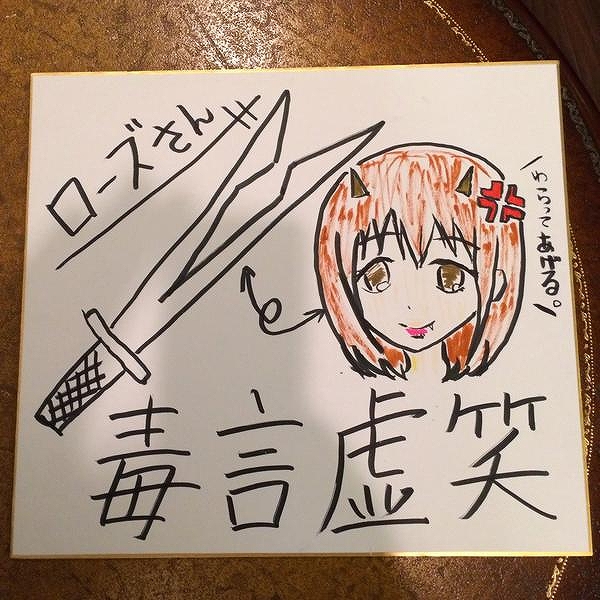 ローズさん
わらってあげる。
毒言虚笑